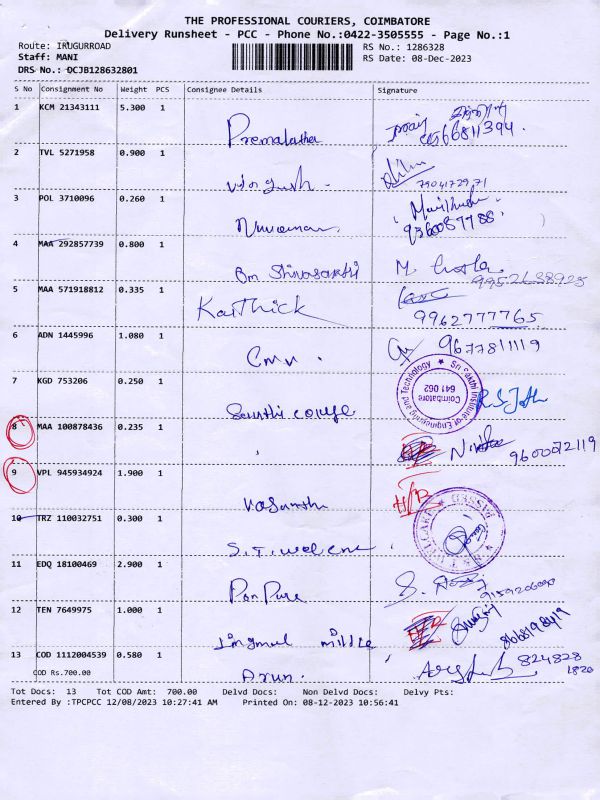 THE PROFESSIONAL COURIERS, COIMBATORE
Delivery Runsheet - PCC - Phone No.:0422-3505555 - Page No.:1
Route: IRUGURROAD RS No.: 1286328
Staff: MANI RS Date: 08-Dec-2023
DRS No.: DCJB128632801
S No Consignment No Weight PCS Consignee Details Signature
1 KCM 21343111 5.300 1
Premalatha
2 TVL 5271958 0.900 1
7904172971
3 POL 3710096 0.260 1
9360087788
4 MAA 292857739 0.800 1
Bm Shivasakthi
5 MAA 571918812 0.335 1
Karthick 9962777765
6 ADN 1445996 1.080 1
9677811119
Cmv
7 KGD 753206 0.250 1
Sri Sakthi Institute of Engineering and Technology
Coimbatore
641 062
8 MAA 100878436 0.235 1
9600072119
9 VPL 945934924 1.900 1
H/R
10 TRZ 110032751 0.300 1
11 EDQ 18100469 2.900 1
Pon Pure
12 TEN 7649975 1.000 1
middle
13 COD 1112004539 0.580 1
824828
1820
COD Rs.700.00 Arun
Tot Docs: 13 Tot COD Amt: 700.00 Delvd Docs: Non Delvd Docs: Delvy Pts:
Entered By :TPCPCC 12/08/2023 10:27:41 AM Printed On: 08-12-2023 10:56:41